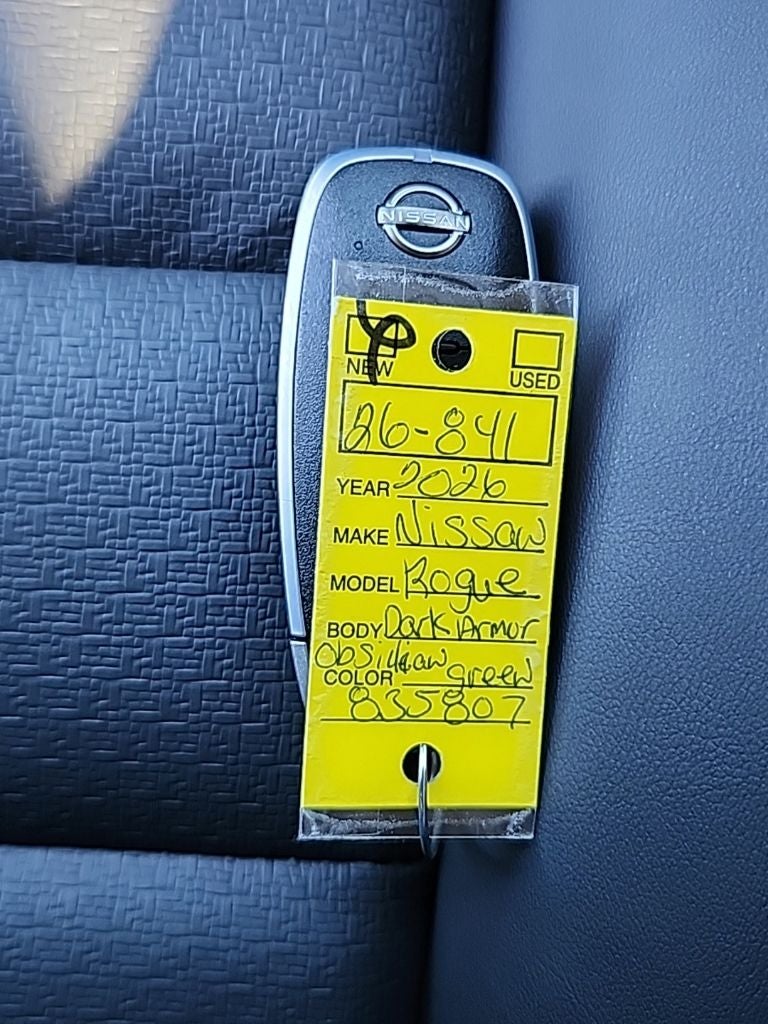 NISSAN
NEW USED
26-841
YEAR 2026
MAKE Nissan
MODEL Rogue
BODY Dark Armor
Obsidian green
COLOR
835807